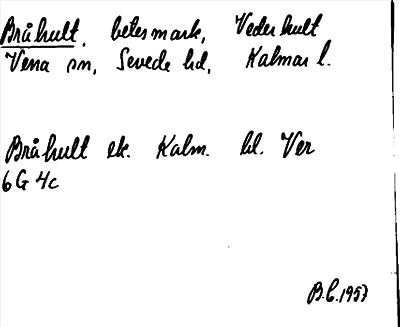 Bråhult, betesmark, Vederhult
Vena sn, Sevede hd, Kalmar l.
Bråhult ek. Kalm. bl. Ver
6G 4c
B.C. 1957